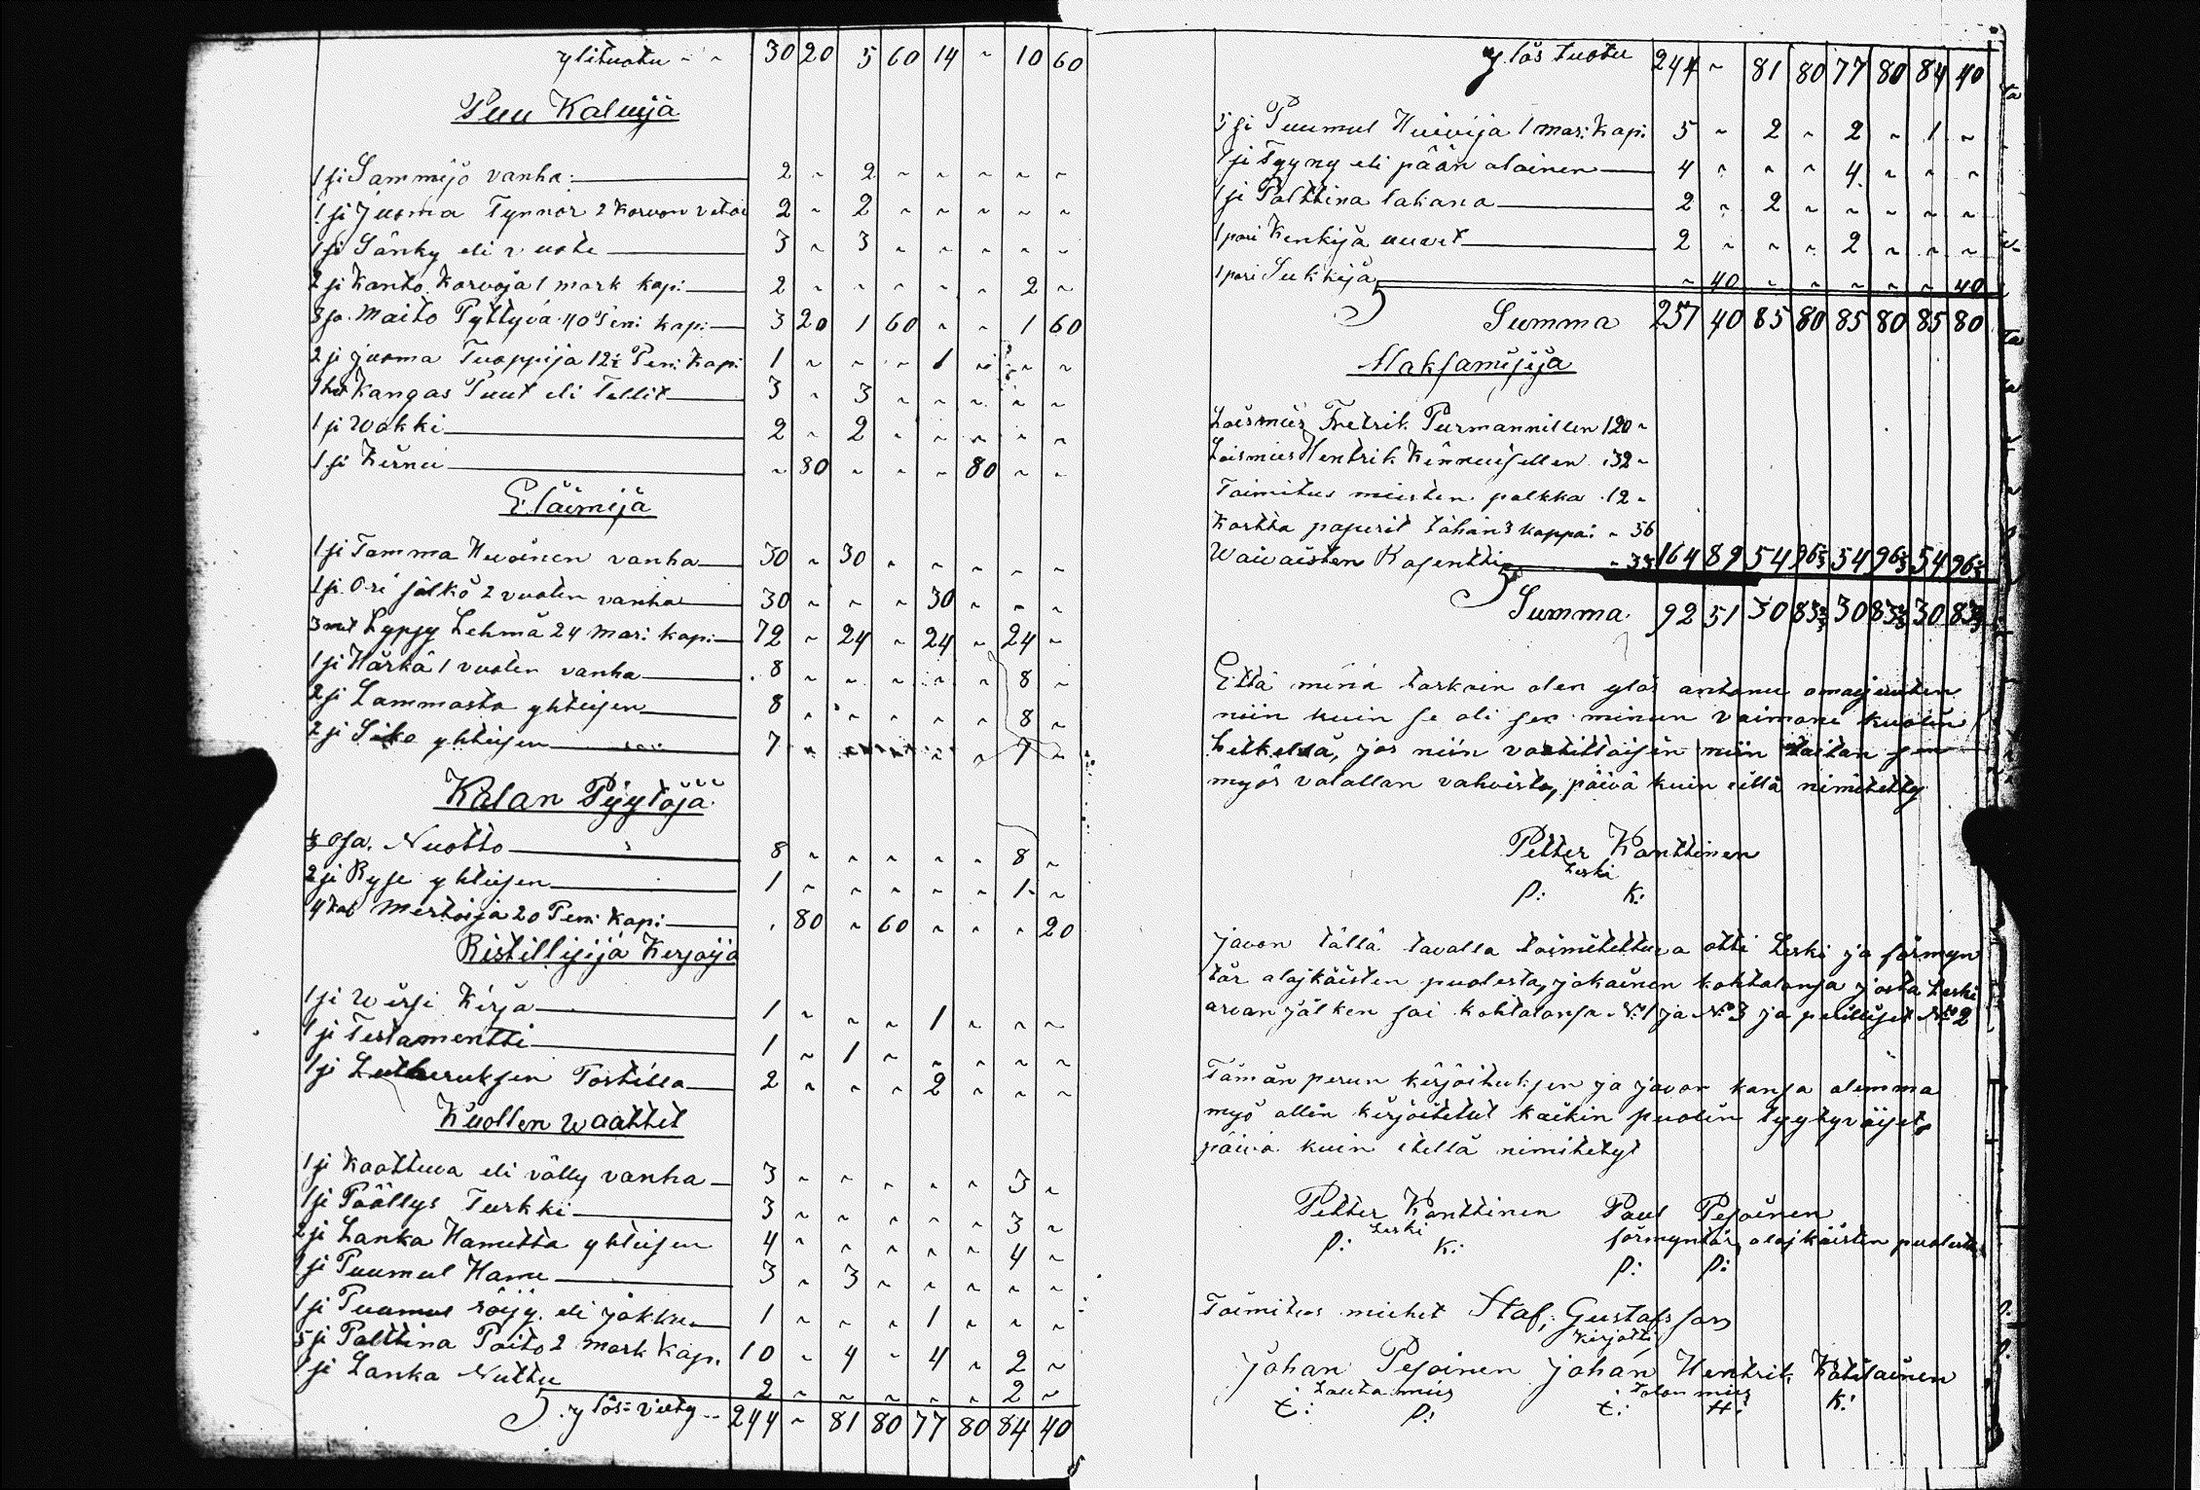 ylituotu ~ ~ 30 20 5 60 14 ~ 10 60
Puu Kaluija
1 si Sammijo vanha: 2 ~ 2 ~ ~ ~ ~ ~
1 si Juoma Tynnör 2 Korvon vetoi 2 ~ 2 ~ ~ ~ ~ ~
1 si Sänky eli vuote 3 ~ 3 ~ ~ ~ ~ ~
2 si Kanto Korvoja 1 mark kap: 2 ~ ~ ~ ~ ~ 2 ~
8 sa. Maito Pyttyvä 40 Peni kap: 3 20 1 60 ~ ~ 1 60
2 si juoma Tuoppija 12½ Peni Kap: 1 ~ ~ ~ 1 ~ ~ ~
1 ket Kangas Puut eli Tellit 3 ~ 3 ~ ~ ~ ~ ~
1 si Wakki 2 ~ 2 ~ ~ ~ ~ ~
1 si Kirnu ~ 80 ~ ~ ~ 80 ~ ~
Eläimijä
1 si Tamma Hevoinen vanha 30 ~ 30 ~ ~ ~ ~ ~
1 si Ori sälkö 2 vuoten vanha 30 ~ ~ ~ 30 ~ ~ ~
3 met Lypsy Lehmä 24 mar: kap: 72 ~ 24 ~ 24 ~ 24 ~
1 si Härkä 1 vuoten vanha 8 ~ ~ ~ ~ ~ 8 ~
2 si Lammasta yhteisen 8 ~ ~ ~ ~ ~ 8 ~
2 si Siko yhteisen 7 ~ ~ ~ ~ ~ 7 ~
Kalan Pyytöjä
⅓ osa. Nuotto 8 ~ ~ ~ ~ ~ 8 ~
2 si Ryse yhteisen 1 ~ ~ ~ ~ ~ 1 ~
4 kal Mertoija 20 Peni kapi ~ 80 ~ 60 ~ ~ ~ 20
Ristillisijä Kirjoijä
1 si Wirsi Kirja 1 ~ ~ ~ 1 ~ ~ ~
1 si Testamentti 1 ~ 1 ~ ~ ~ ~ ~
1 si Lutheruksen Postilla 2 ~ ~ ~ 2 ~ ~ ~
Kuollen Waattet
1 si Kaattuva eli välly vanha 3 ~ ~ ~ ~ ~ 3 ~
1 si Päällys Turkki 3 ~ ~ ~ ~ ~ 3 ~
2 si Lanka Hametta yhteisen 4 ~ ~ ~ ~ ~ 4 ~
1 si Puumul Hame 3 ~ 3 ~ ~ ~ ~ ~
1 si Puumul röijy eli jakku 1 ~ ~ ~ 1 ~ ~ ~
5 si Palttina Paito 2 mark kap. 10 ~ 4 ~ 4 ~ 2 ~
1 si Lanka Nuttu 2 ~ ~ ~ ~ ~ 2 ~
ylös=viety 244 ~ 81 80 77 80 84 40
ylös tuotu 244 ~ 81 80 77 80 84 40
5 si Puumul Huivija 1 mar: kap: 5 ~ 2 ~ 2 ~ 1 ~
1 si Tyyny eli pään alainen 4 ~ ~ ~ 4 ~ ~ ~
1 si Palttina lakana 2 ~ 2 ~ ~ ~ ~ ~
1 pari Kenkija uuvet 2 ~ ~ ~ 2 ~ ~ ~
1 pari Sukkija ~ 40 ~ ~ ~ ~ ~ 40
Summa 257 40 85 80 85 80 85 80
Maksamisija
Loismies Fretrik Purmannillen 120 ~
Loismies Hentrik Kinnuisellen 32 ~
Toimitus miesten palkka 12 ~
Kartta paperit tähän 3 kappa: ~ 56
Waivaisten Rosenttia ~ 33 164 89 54 96⅓ 54 96⅓ 54 96⅓
Summa 92 51 30 83⅔ 30 83⅔ 30 83⅔
Että minä tarkoin olen ylös antanu omaisuuten
niin kuin se oli sen minun vaimoni kuolin
hetkellä, jos niin vaatittaisin niin taitan sen
myös valallan vahvista, päivä kuin eillä nimitetty
Petter Kanttinen
Leski
P: K:
Javon tällä tavalla toimitettuva otti Leski ja förmyn
tär alaikäisten puolesta, jokainen kohtalonsa josta Leski
arvan jälken sai kohtalonsa No 1 ja No 3 ja peilliset No 2
Tämän perun kirjoituksen ja javon kansa olemma
myö allin kirjoitetut kaikin puolin tyytyväiset,
päivä kuin etellä nimitetyt
Petter Kanttinen Paul Pesoinen
Leski förmyntär, alaikäisten puolesta
P: K: P: P:
Toimitus miehet Staf: Gustafsson
Kirjotti
Johan Pesoinen Johan Hentrik Kotilainen
Lauta mies Talon mies
t: P: t: H: K: